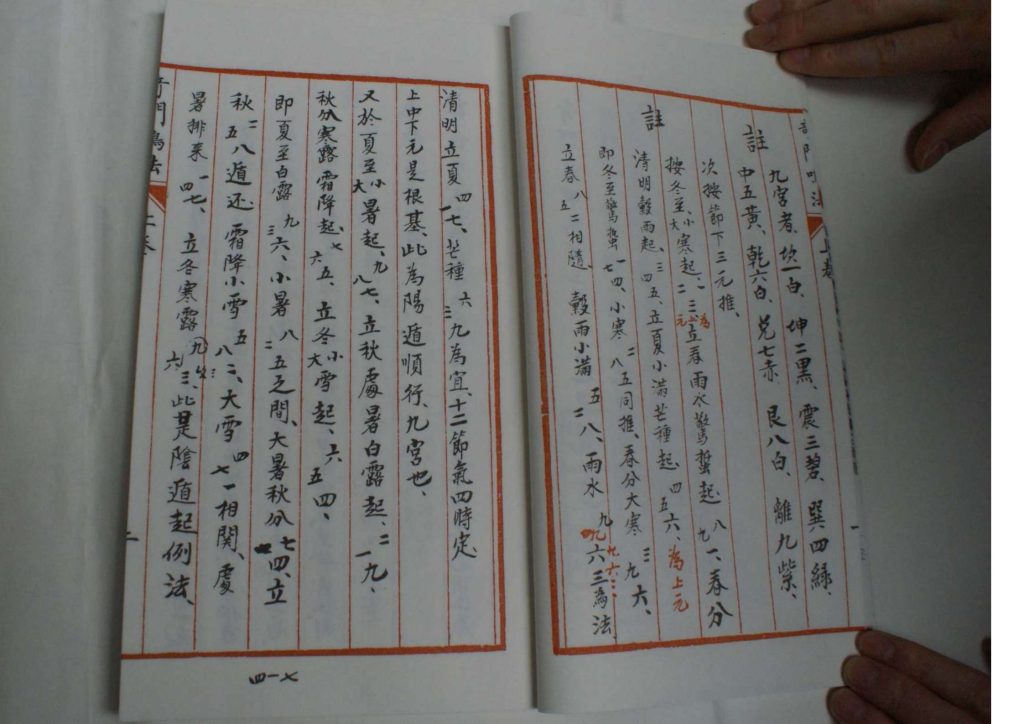 奇門鳴法 上卷 一
註
九宮者、坎一白、坤二黑、震三碧、巽四綠、
中五黃、乾六白、兌七赤、艮八白、離九紫、
次按節下三元推、
註
按冬至、小大寒起、一二三、為元立春雨水驚蟄起 八九一、春分
清明穀雨起 三四五、立夏小滿芒種起 四五六、為上元
即冬至驚蟄 一七四、小寒 二八五同推、春分大寒 三九六、
立春 八五二相隨、穀雨小滿 五二八、雨水 九六三為法、
九六三
清明立夏 四一七、芒種 六三九為宜、十二節氣四時定、
上中下元是根基、此為陽遁順行、九宮也、
又於夏至小大暑起、九八七、立秋處暑白露起、二一九、
秋分寒露霜降起、七六五、立冬小大雪起、六五四、
即夏至白露 九三六、小暑 八二五之間、大暑秋分 七一四、立
秋 二五八遁还、霜降小雪 五八二、大雪 四七一相關、處
暑排來 一四七、立冬寒露 六九三、此是陰遁起例法、
奇門鳴法 上卷 二
四一七